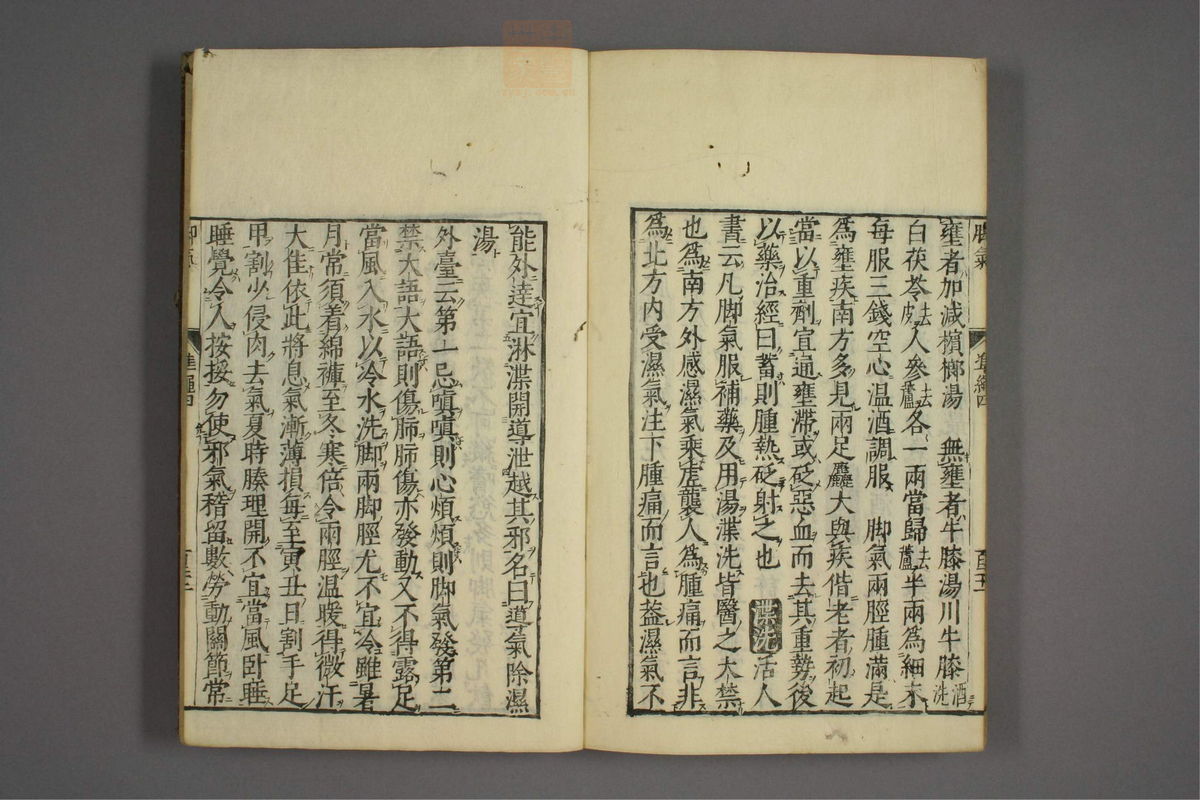 壅者加减檳榔湯　無壅者牛膝湯川牛膝酒洗
白茯苓去皮人參去蘆各一兩當歸去蘆半兩爲細末
每服三錢空心温酒調服　脚氣兩脛腫滿是
爲壅疾南方多見兩足麤大與疾偕老者初起
當以重劑宜通壅滯或砭惡血而去其重勢後
以藥治經曰蓄則腫熱砭射之也　渫洗活人
書云凡脚氣服補藥及用湯渫洗皆醫之大禁
也爲南方外感濕氣乘虛襲人爲腫痛而言非
爲北方内受濕氣注下腫痛而言也葢濕氣不
能外達宜淋渫開導泄越其邪名曰導氣除濕
湯
外臺云第一忌嗔嗔則心煩煩則脚氣發第二
禁大語大語則傷肺肺傷亦發動又不得露足
當風入水以冷水洗脚兩脚脛尤不宜冷雖暑
月常須着綿褲至冬寒倍令兩脛温暖得微汗
大佳依此將息氣漸薄損每至寅丑日割手足
甲割少侵肉去氣夏時腠理開不宜當風卧睡
睡覺令人按挼勿使邪氣稽留數勞動關節常